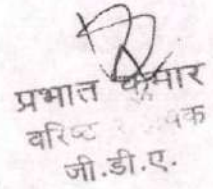 प्रभात कुमार
वरिष्ठ
जी.डी.ए.